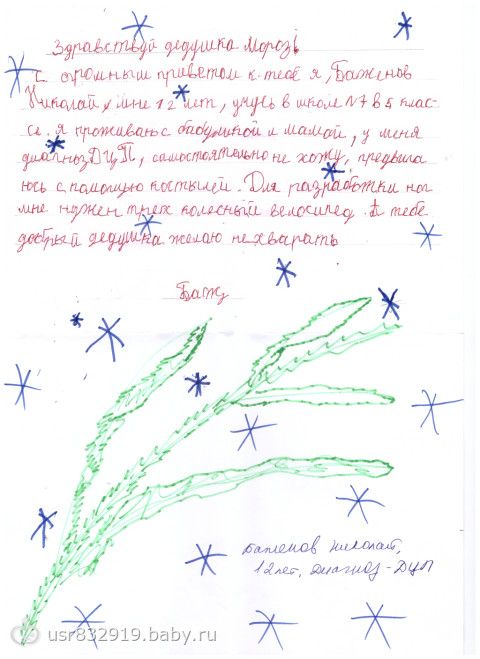 Здравствуй дедушка Мороз!
С огромным приветом к тебе я, Баженов
Николай, мне 12 лет, учусь в школе N7 в 5 клас-
се. я проживаю с бабушкой и мамой, у меня
диагноз ДЦП, самостоятельно не хожу, предвига
юсь с помощью костылей. Для разработки ног
мне нужен трех колесный велосипед. А тебе
добрый дедушка желаю не хварать
Баж
Баженов Николай,
12 лет, диагноз-ДЦП
usr832919.baby.ru